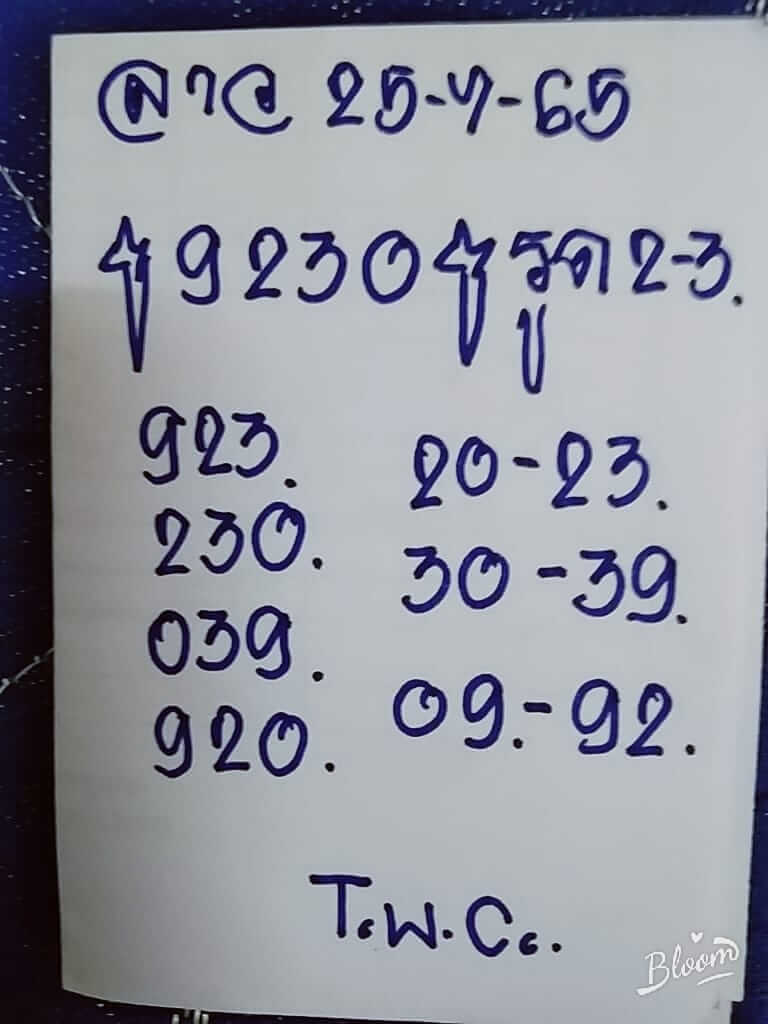 ลาว 25-7-65
9230 รูด 2-3.
923.
230.
039.
920.
20-23.
30-39.
09.-92.
T.พ.C..
Bloom